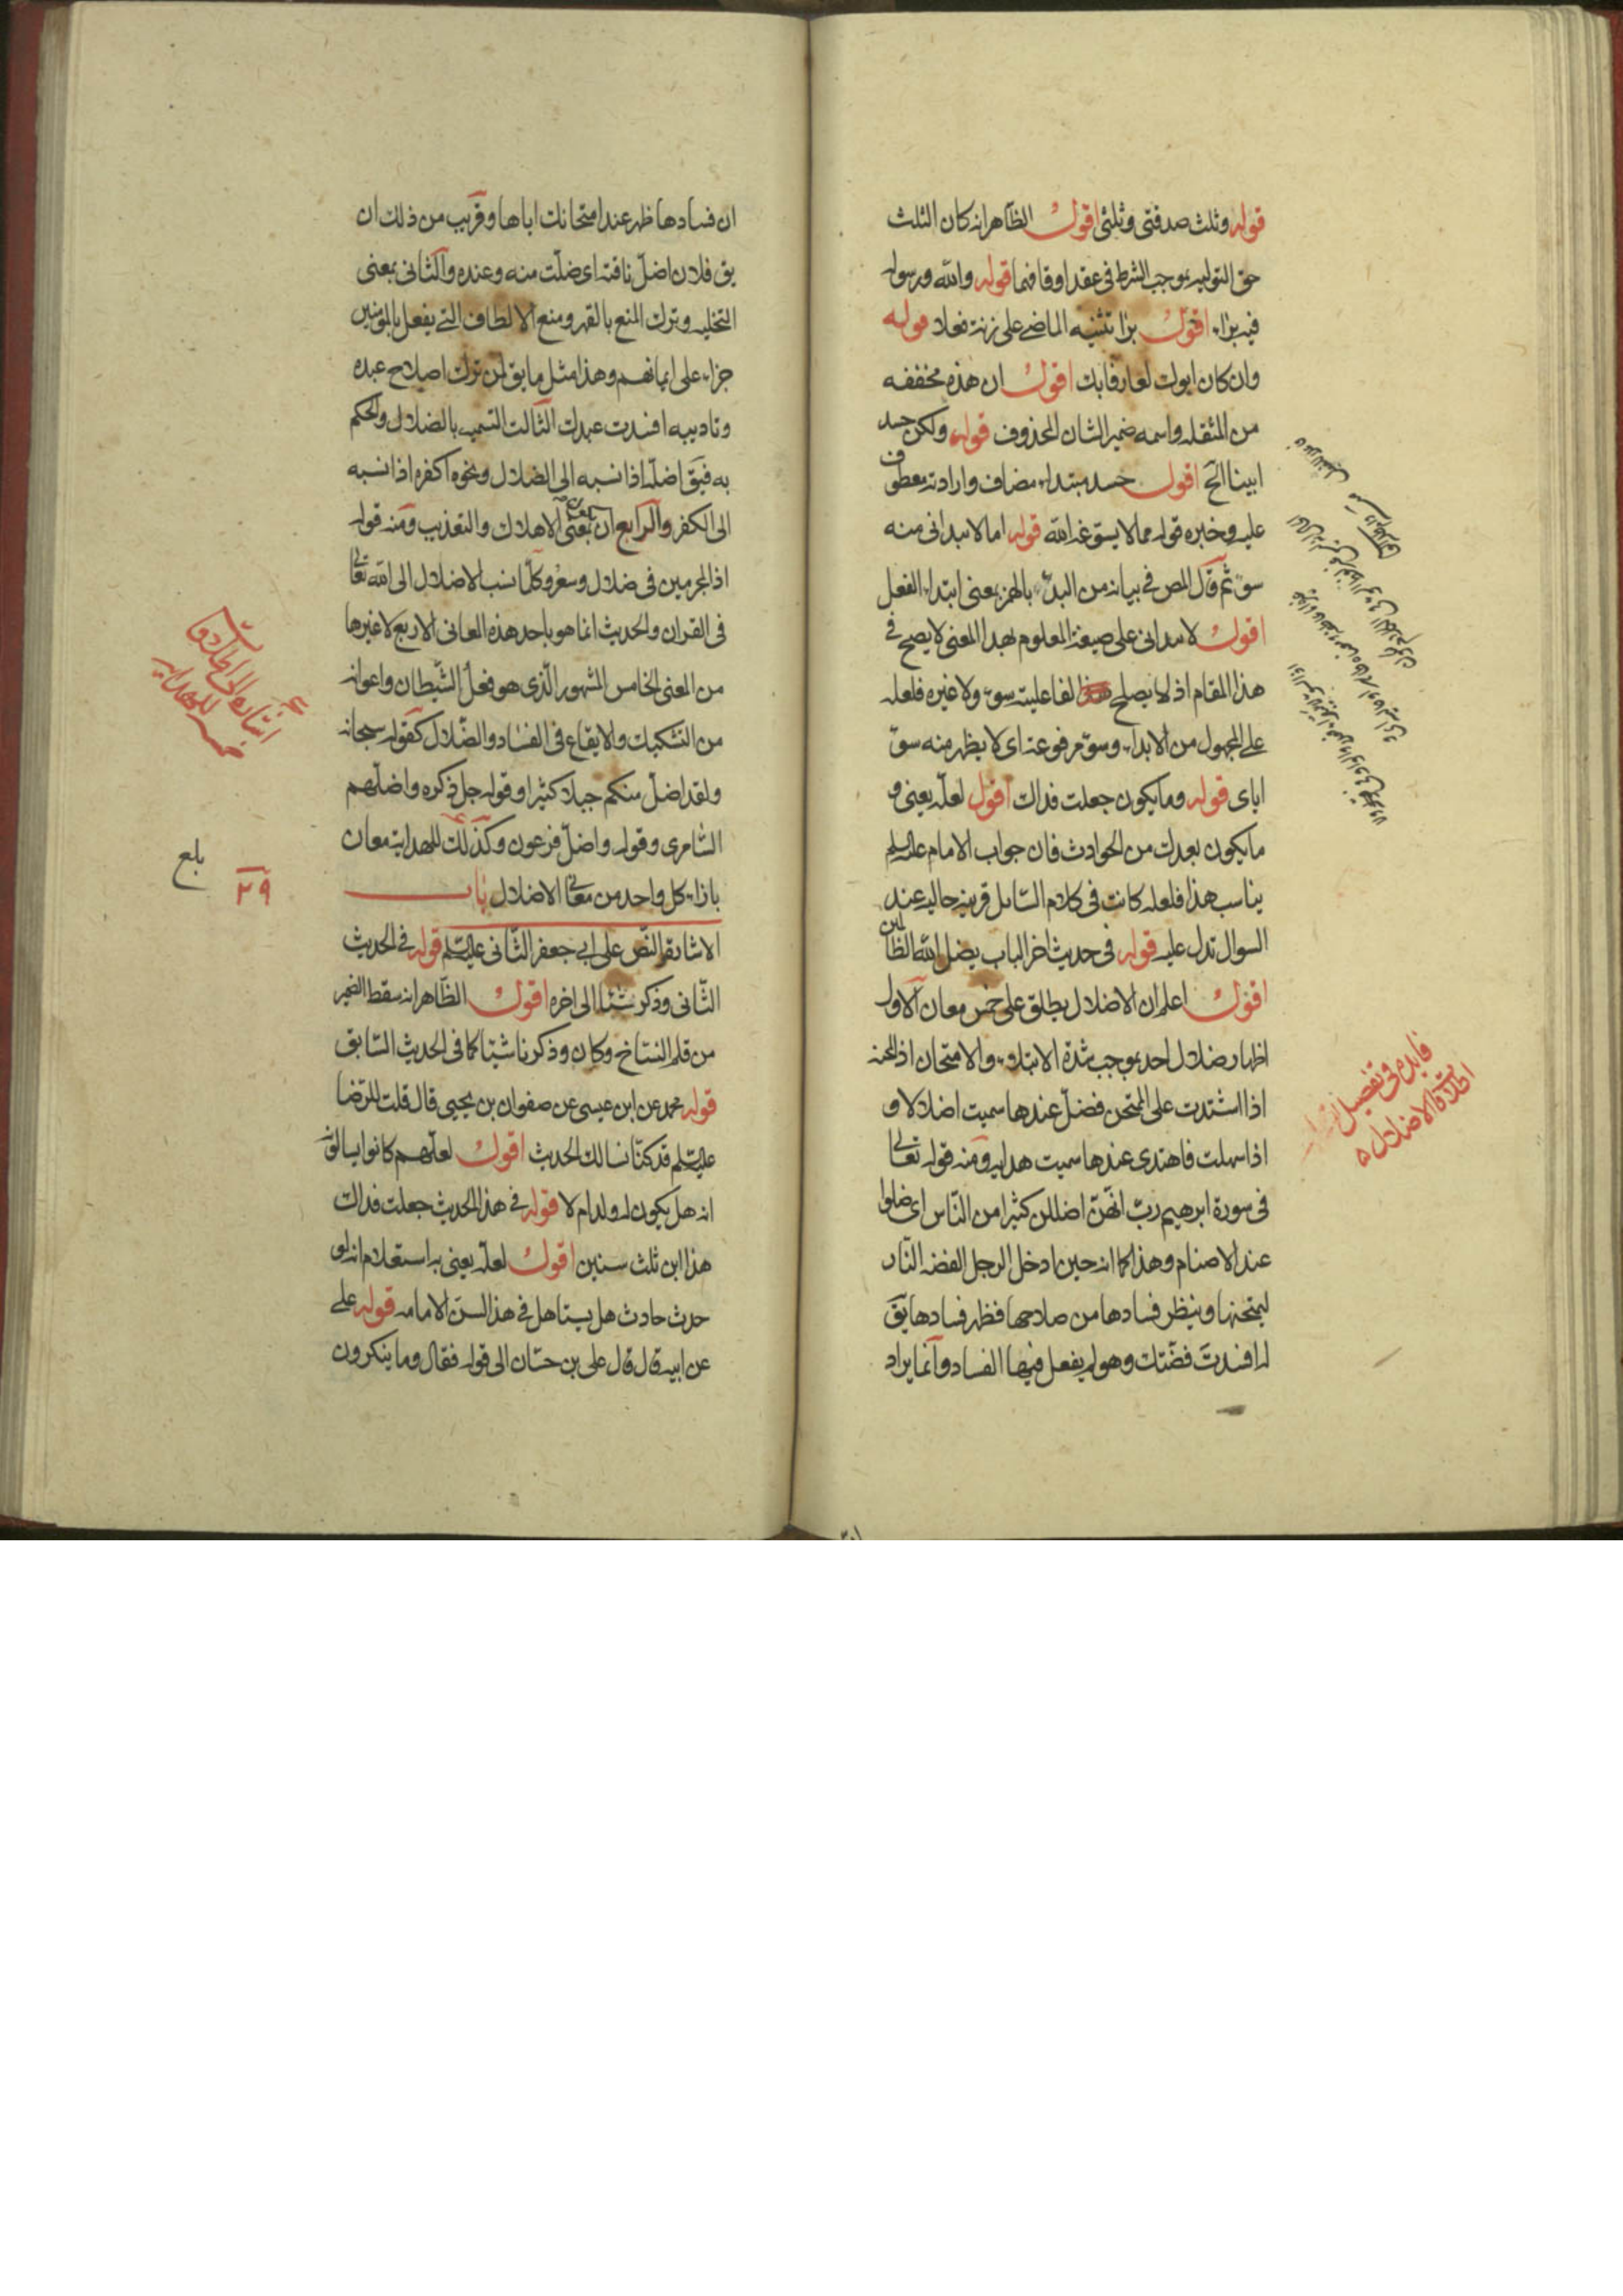 قوله وثلث صدقتى وثلثى اقول الظاهر انه كان الثلث
حق التوليه بموجب الشرط فى عقد اوقافهما قوله والله ورسوله
فيه براء اقول برا تثنيه الماضى على زنة فعلا قوله
وان كان ابوك لعارفا بك اقول ان هذه مخففه
من المثقله واسمه ضمير الشان المحذوف قوله ولكن حسد
ابينا الخ اقول حسد مبتداء مضاف وارادته معطوف
عليه وخبره قوله مما لا يسوغه الله قوله اما لا يبدانى منه
سوء ثم قال المص فى بيانه من البدء بالهمز بمعنى ابتداء الفعل
اقول لا يبدانى على صيغة المعلوم بهذا المعنى لا يصح فى
هذا المقام اذ لا يصلح لفاعليته سوء ولا غيره فلعله
على المجهول من الابداء وسوء مرفوعه اى لا يظهر منه سوء
اياى قوله وما يكون جعلت فداك اقول لعله يعنى و
ما يكون بعدك من الحوادث فان جواب الامام عليه السلم
يناسب هذا فلعله كانت فى كلام السائل قرينه حاليه عند
السوال تدل عليه قوله فى حديث اخر الباب يضل الله الظالمين
اقول اعلم ان الاضلال يطلق على خمس معان الاول
اظهار ضلال احد بموجب شدة الابتلاء والامتحان اذ المحنه
اذا اشتدت على الممتحن فضل عندها سميت اضلالا و
اذا سهلت فاهتدى عندها سميت هدايه ومنه قوله تعالى
فى سورة ابرهيم رب انهن اضللن كثيرا من الناس اى ضلوا
عند الاصنام وهذا كما انه حين ادخل الرجل الفضه النار
ليمتحنها وينظر فسادها من صلاحها فظهر فسادها يق
له افسدت فضتك وهو لم يفعل فيها الفساد وانما يراد
فايده فى تفصيل
اطلاقات الاضلال
ان فسادها ظهر عند امتحانك اياها وقريب من ذلك ان
يق فلان اضل ناقته اى ضلت منه وعنده والثانى بمعنى
التخليه وترك المنع بالقهر ومنع الالطاف التى يفعل بالمؤمنين
جزاء على ايمانهم وهذا مثل ما يق لمن ترك اصلاح عبده
وتاديبه افسدت عبدك الثالث التسميه بالضلال والحكم
به فيق اضله اذا نسبه الى الضلال ونحوه اكفره اذا نسبه
الى الكفر والرابع ان بمعنى الاهلاك والتعذيب ومنه قوله
اذ المجرمين فى ضلال وسعر وكلما نسب الاضلال الى الله تعالى
فى القران والحديث انما هو باحد هذه المعانى الاربع لا غيرها
من المعنى الخامس المشهور الذى هو فعل الشيطان واعوانه
من التشكيك والايقاع فى الفساد والضلال كقوله سبحانه
ولقد اضل منكم جبلا كثيرا وقوله جل ذكره واضلهم
السامرى وقوله واضل فرعون وكذلك للهداية معان
بازاء كل واحد من معانى الاضلال باب
الاشاره والنص على ابى جعفر الثانى عليه السلم قوله فى الحديث
الثانى وذكر شيئا الى اخره اقول الظاهر انه سقط الضمير
من قلم النساخ وكان وذكرنا شيئا كما فى الحديث السابق
قوله محمد عن ابن عيسى عن صفوان بن يحيى قال قلت للرضا
عليه السلم قد كنا نسالك الحديث اقول لعلهم كانوا يسالونه
انه هل يكون له ولد ام لا قوله فى هذا الحديث جعلت فداك
هذا ابن ثلث سنين اقول لعله يعنى به استعلام انه لو
حدث حادث هل يستاهل فى هذا السن الامامه قوله على
عن ابيه قال قال على بن حسان الى قوله فقال وما ينكرون
بلغ
٢٩